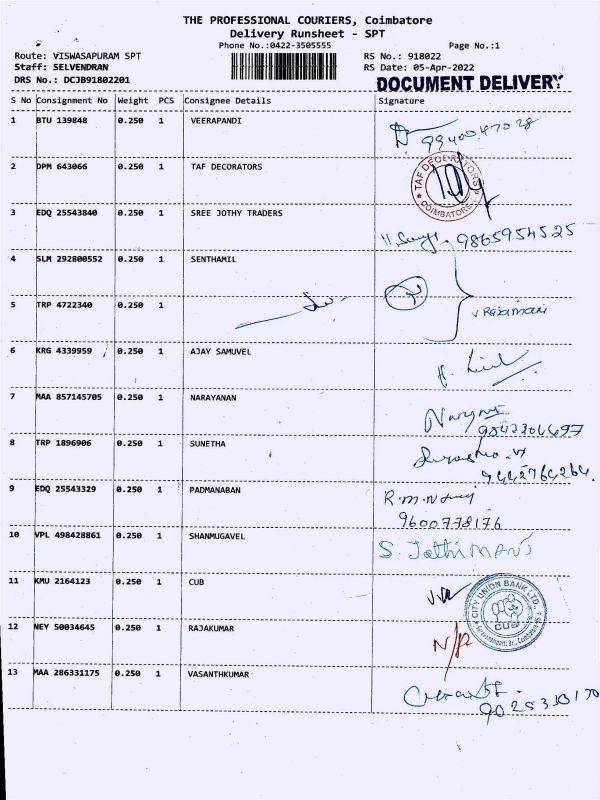 THE PROFESSIONAL COURIERS, Coimbatore
Delivery Runsheet - SPT
Phone No.:0422-3505555
Page No.:1
Route: VISWASAPURAM SPT
RS No.: 918022
Staff: SELVENDRAN
RS Date: 05-Apr-2022
DRS No.: DCJB91802201
DOCUMENT DELIVERY
S No Consignment No Weight PCS Consignee Details Signature
1 BTU 139848 0.250 1 VEERAPANDI
9940047028
2 DPM 643066 0.250 1 TAF DECORATORS
TAF DECORATORS
COIMBATORE
3 EDQ 25543840 0.250 1 SREE JOTHY TRADERS
9865954525
4 SLM 292800552 0.250 1 SENTHAMIL
5 TRP 4722340 0.250 1
V Rajamani
6 KRG 4339959 0.250 1 AJAY SAMUVEL
7 MAA 857145705 0.250 1 NARAYANAN
8 TRP 1896906 0.250 1 SUNETHA
9442764264.
9 EDQ 25543329 0.250 1 PADMANABAN
R.M.N
9600778176
10 VPL 498428861 0.250 1 SHANMUGAVEL
S. Jothimani
11 KMU 2164123 0.250 1 CUB
CITY UNION BANK LTD.,
CUB
12 NEY 50034645 0.250 1 RAJAKUMAR
N/R
13 MAA 286331175 0.250 1 VASANTHKUMAR